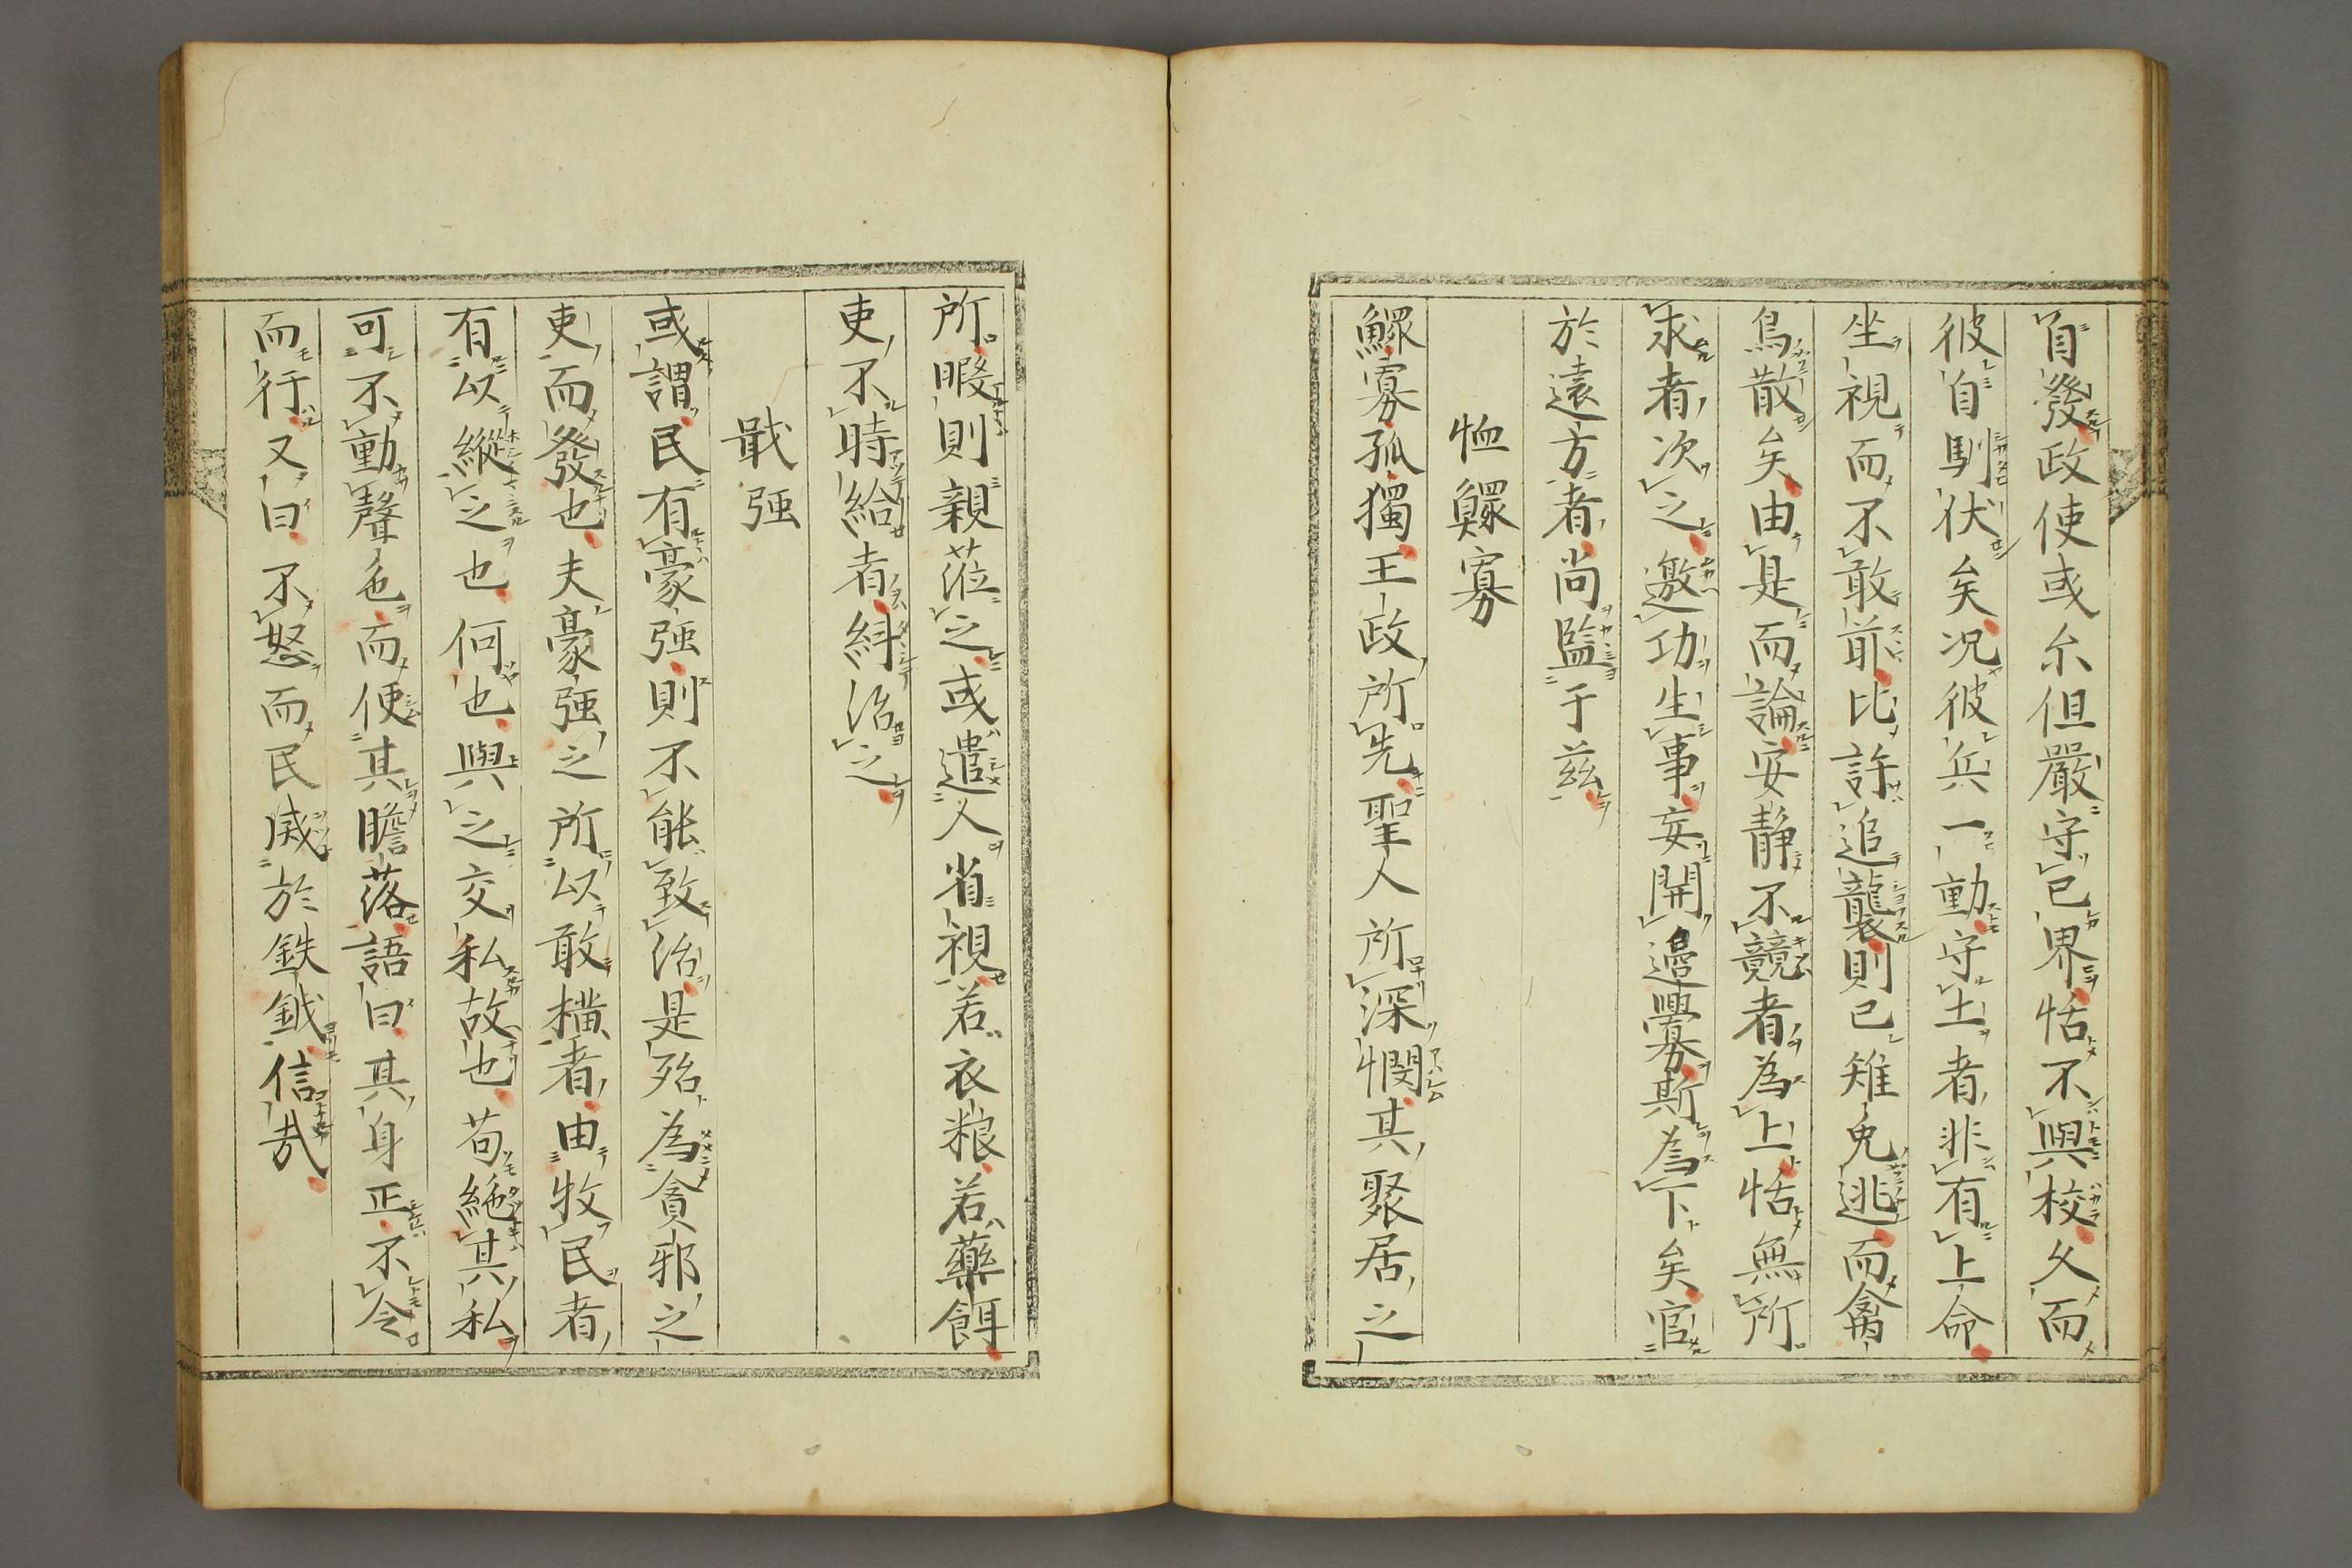 自發政使或尒但嚴守已界恬不與校久而
彼自馴伏矣况彼兵一動守土者非有上命
坐視而不敢前比許追襲則已雉兔逃而禽
鳥散矣由是而論安静不競者為上恬無所
求者次之邀功生事妄開邊釁斯為下矣官
於遠方者尚監于茲
恤鰥寡
鰥寡孤獨王政所先聖人所深憫其聚居之
所暇則親蒞之或遣人省視若衣粮若藥餌
吏不時給者糾治之
戢强
或謂民有豪强則不能致治是殆為貪邪之
吏而發也夫豪强之所以敢横者由牧民者
有以縱之也何也與之交私故也苟絶其私
可不動聲色而使其膽落語曰其身正不令
而行又曰不怒而民威於鉄鉞信哉